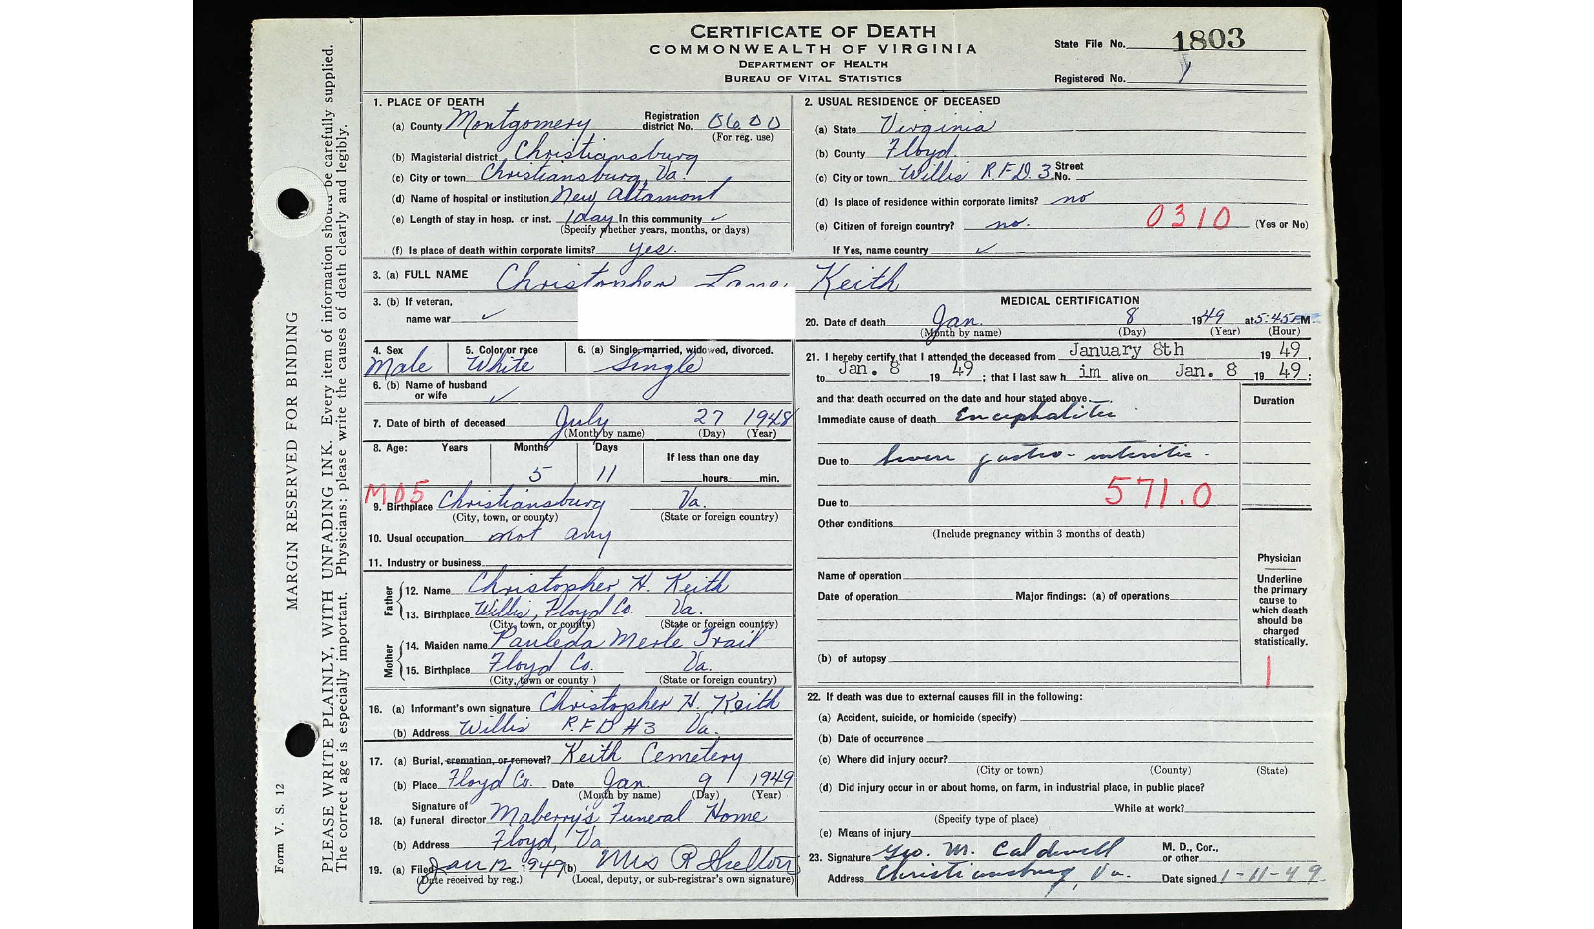 CERTIFICATE OF DEATH
COMMONWEALTH OF VIRGINIA
DEPARTMENT OF HEALTH
BUREAU OF VITAL STATISTICS
State File No. 1803
Registered No.
MARGIN RESERVED FOR BINDING
PLEASE WRITE PLAINLY, WITH UNFADING INK. Every item of information should be carefully supplied.
The correct age is especially important. Physicians: please write the causes of death clearly and legibly.
Form V. S. 12
1. PLACE OF DEATH
(a) County Montgomery Registration district No. 0600
(For reg. use)
(b) Magisterial district Christiansburg
(c) City or town Christiansburg, Va.
(d) Name of hospital or institution New Altamont
(e) Length of stay in hosp. or inst. 1 day In this community ✓
(Specify whether years, months, or days)
(f) Is place of death within corporate limits? Yes.
2. USUAL RESIDENCE OF DECEASED
(a) State Virginia
(b) County Floyd
(c) City or town Willis R.F.D. 3 Street No.
(d) Is place of residence within corporate limits? no
(e) Citizen of foreign country? no. 0310 (Yes or No)
If Yes, name country ✓
3. (a) FULL NAME Christopher Lane Keith
3. (b) If veteran,
name war ✓
4. Sex Male
5. Color or race White
6. (a) Single, married, widowed, divorced. Single
6. (b) Name of husband
or wife ✓
7. Date of birth of deceased July 27 1948
(Month by name) (Day) (Year)
8. Age: Years Months 5 Days 11 If less than one day
hours min.
MD5
9. Birthplace Christiansburg Va.
(City, town, or county) (State or foreign country)
10. Usual occupation not any
11. Industry or business
Father
12. Name Christopher H. Keith
13. Birthplace Willis, Floyd Co. Va.
(City, town, or county) (State or foreign country)
Mother
14. Maiden name Pauleda Merle Trail
15. Birthplace Floyd Co. Va.
(City, town or county) (State or foreign country)
16. (a) Informant's own signature Christopher H. Keith
(b) Address Willis R.F.D #3 Va.
17. (a) Burial, cremation, or removal? Keith Cemetery
(b) Place Floyd Co. Date Jan. 9 1949
(Month by name) (Day) (Year)
18. Signature of
(a) funeral director Maberry's Funeral Home
(b) Address Floyd, Va
19. (a) Filed Jan 12 1949 (b) Mrs R Shelton
(Date received by reg.) (Local, deputy, or sub-registrar's own signature)
MEDICAL CERTIFICATION
20. Date of death Jan. 8 1949 at 5:45 PM
(Month by name) (Day) (Year) (Hour)
21. I hereby certify that I attended the deceased from January 8th 1949,
to Jan. 8 1949; that I last saw him alive on Jan. 8 1949;
and that death occurred on the date and hour stated above. Duration
Immediate cause of death Encephalitis
Due to Severe gastro-enteritis.
Due to 571.0
Other conditions
(Include pregnancy within 3 months of death)
Name of operation
Date of operation Major findings: (a) of operations
(b) of autopsy
Physician
Underline
the primary
cause to
which death
should be
charged
statistically.
1
22. If death was due to external causes fill in the following:
(a) Accident, suicide, or homicide (specify)
(b) Date of occurrence
(c) Where did injury occur?
(City or town) (County) (State)
(d) Did injury occur in or about home, on farm, in industrial place, in public place?
While at work?
(Specify type of place)
(e) Means of injury
23. Signature Geo. M. Caldwell M. D., Cor., or other
Address Christiansburg, Va. Date signed 1-11-49